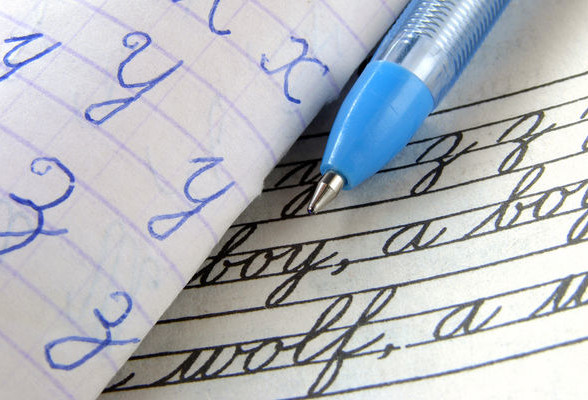 y y x
z y
z
z z
boy, a boy
wolf, a